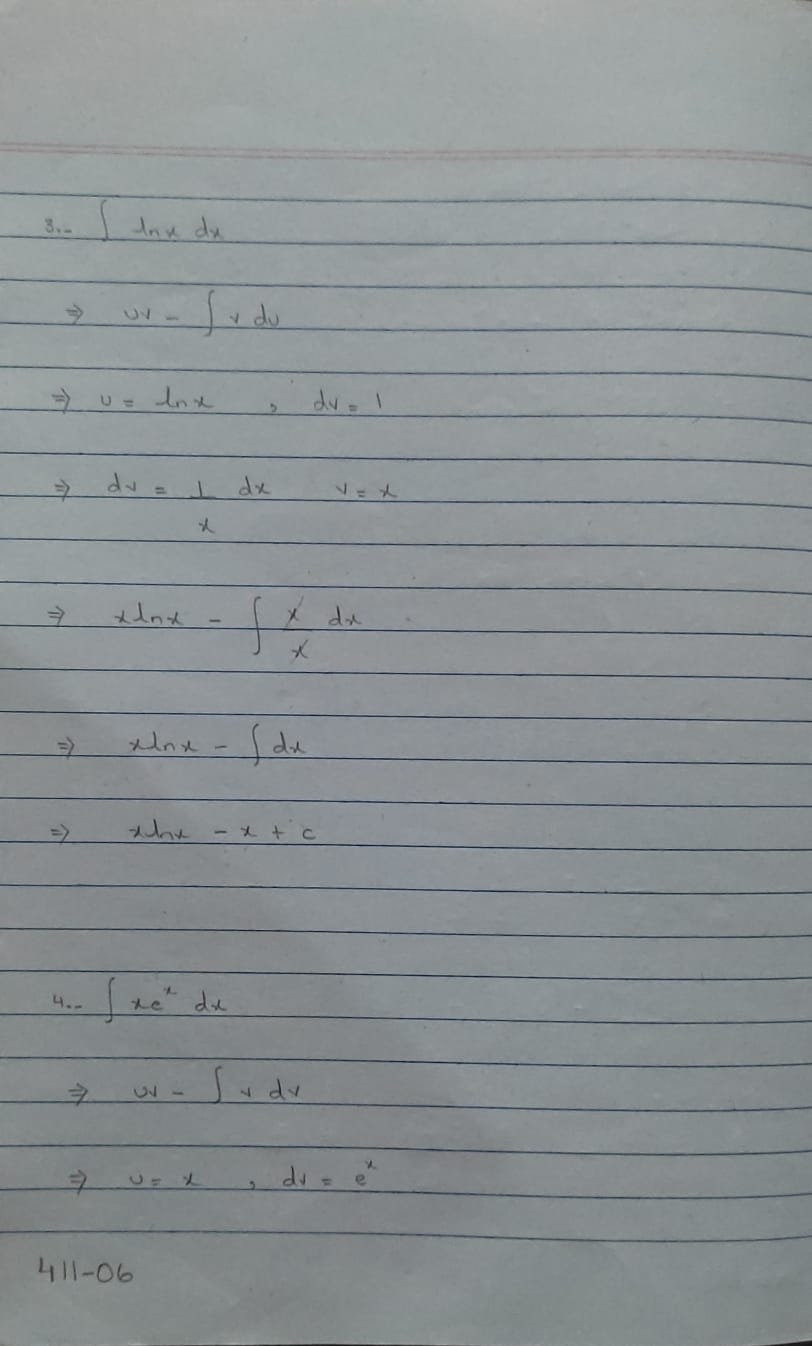 3.. ∫ lnx dx
⇒ uv - ∫ v du
⇒ u = lnx , dv = 1
⇒ du = 1/x dx v = x
⇒ xlnx - ∫ x/x dx
⇒ xlnx - ∫ dx
⇒ xlnx - x + c
4.. ∫ xe^x dx
⇒ uv - ∫ v du
⇒ u = x , dv = e^x
411-06